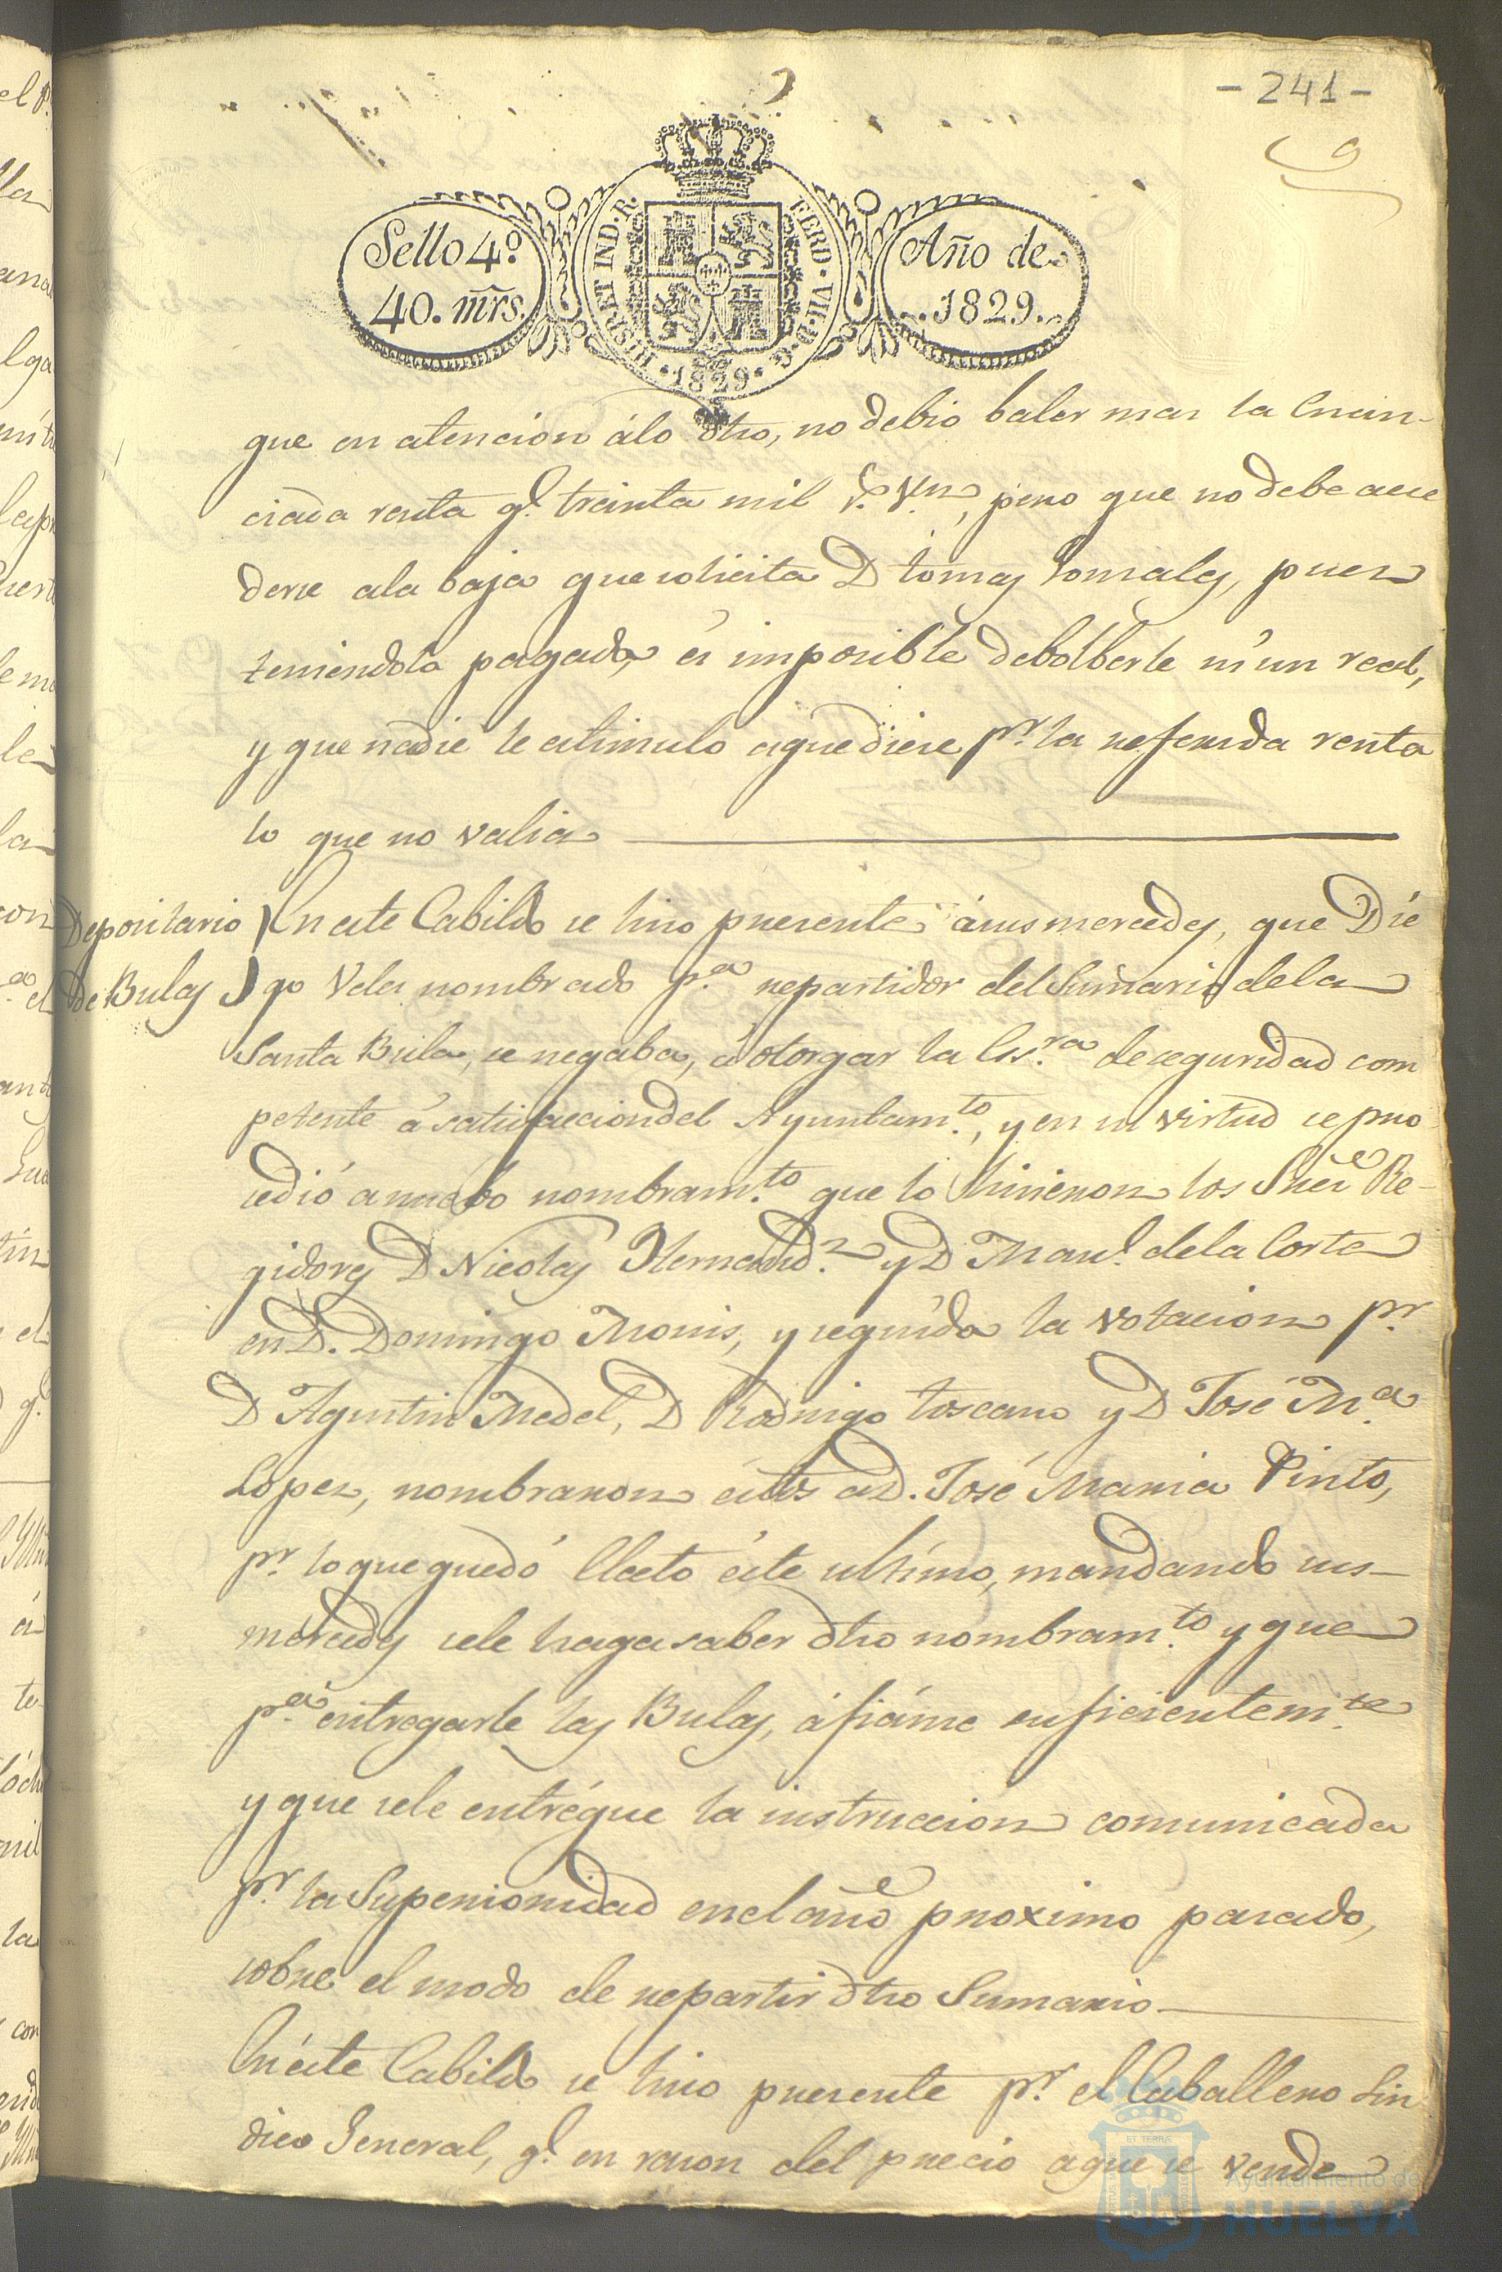 - 241 -
9
Sello 4º
40. mrs.
HISP. ET IND. R. FERD. VII. D. G.
·1829·
Año de
1829.
que en atencion álo dho, no debio baler mas la Enun-
ciada renta q.e treinta mil r.s v.n, pero que no debe acce
derse ala baja que solicita D Tomas Gonsales, pues
teniendola pagada, és imposible debolberle ni un real,
y que nadie le estimulo aque diese p.r la referida renta
lo que no valia
Depositario
de Bulas
En este Cabildo se hiso presente ásus mercedes, que Die
go Vela nombrado p.a repartidor del Sumario dela
Santa Bula, se negaba, á otorgar la Es.ra de seguridad com
petente á satisfaccion del Ayuntam.to, y en su virtud se pro
cedió a nuebo nombram.to que lo hisieron los Señ.es Re-
gidores D Nicolas Hernand.z y D Man.l dela Corte
en D. Domingo Monis, y seguida la votacion p.r
D Agustin Medel, D Rodrigo Toscano y D José M.a
Lopez, nombraron éstos a D. José Maria Pinto,
p.r lo que quedó Electo éste ultimo, mandando sus
mercedes sele haga saber dho nombram.to y que
p.a entregarle las Bulas, áfiáme suficientem.te
y que sele entrégue la instruccion comunicada
p.r la Superioridad enel año proximo pasado,
sobre el modo de repartir dho Sumario
En éste Cabildo se hiso presente p.r el Caballero Sin
dico General, q.e en rason del precio aque se vende
Ayuntamiento de
HUELVA